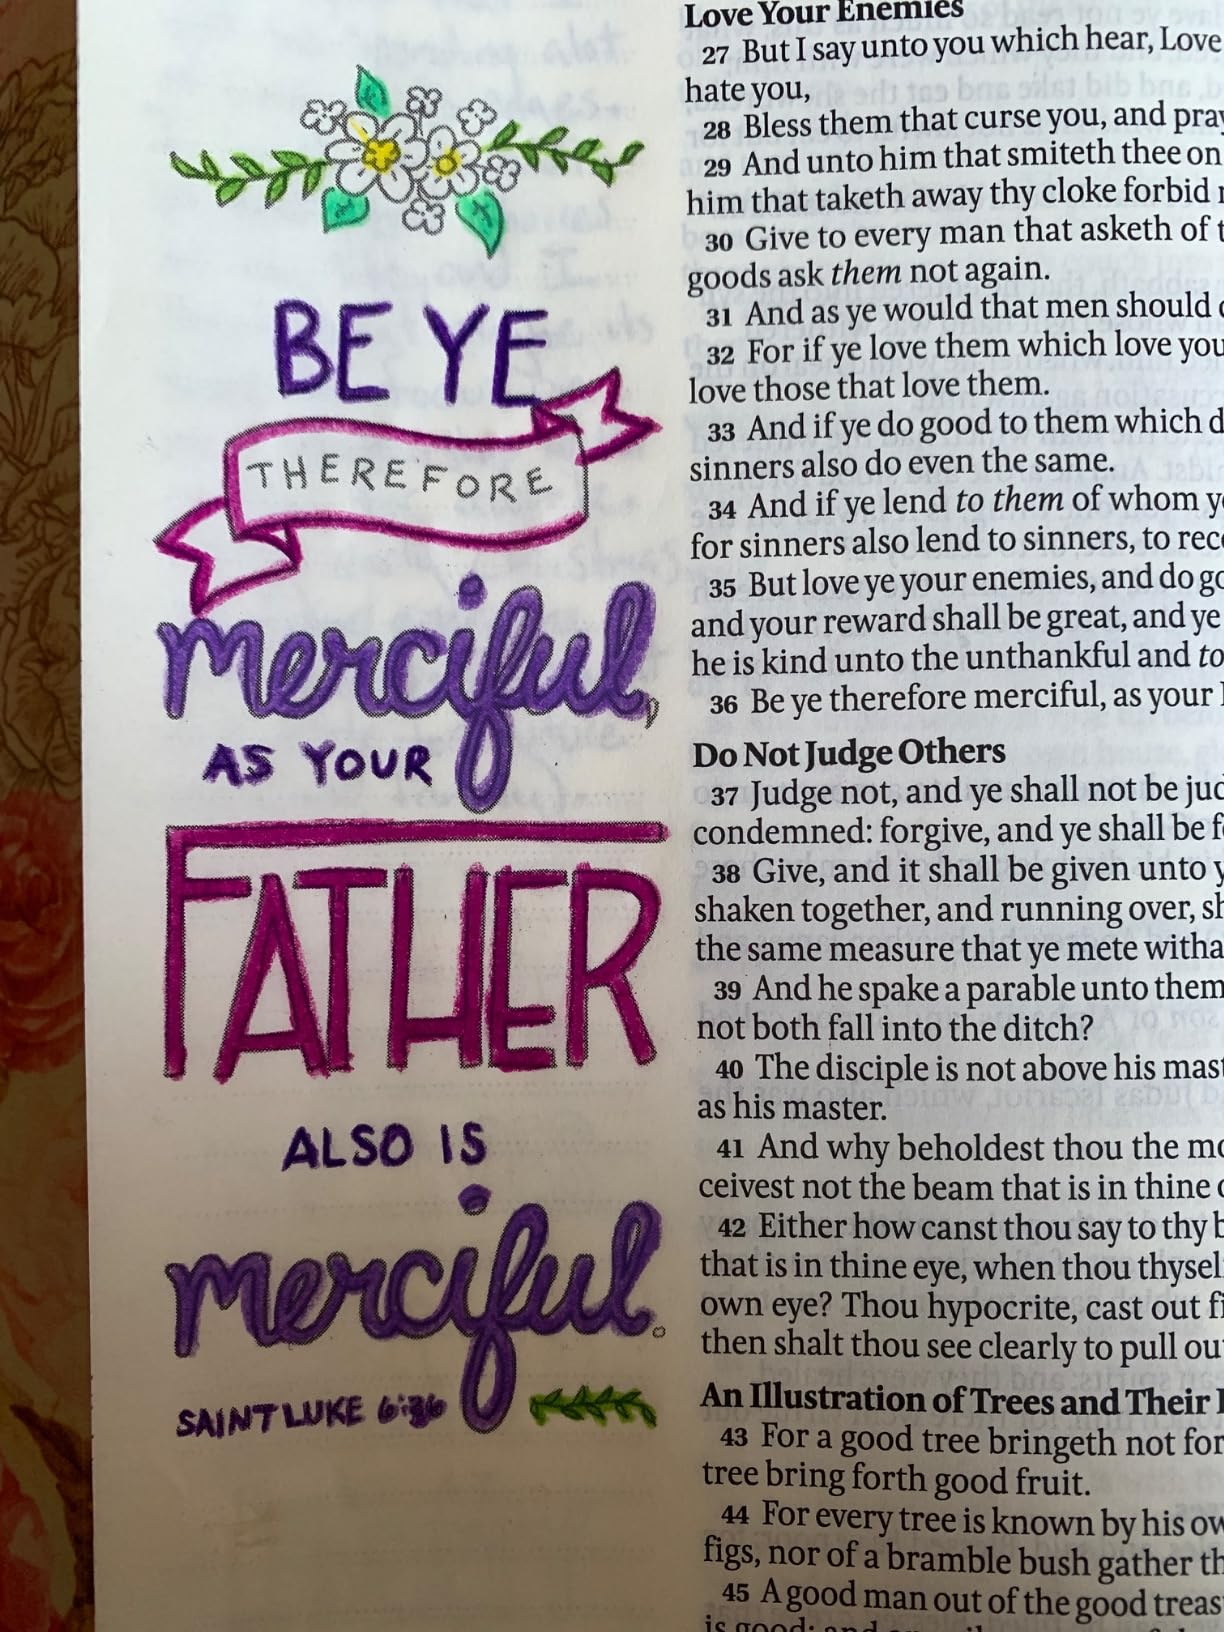 BE YE
THEREFORE
merciful,
AS YOUR
FATHER
ALSO IS
merciful.
SAINT LUKE 6:36
Love Your Enemies
27 But I say unto you which hear, Love
hate you,
28 Bless them that curse you, and pray
29 And unto him that smiteth thee on
him that taketh away thy cloke forbid
30 Give to every man that asketh of
goods ask them not again.
31 And as ye would that men should
32 For if ye love them which love you
love those that love them.
33 And if ye do good to them which
sinners also do even the same.
34 And if ye lend to them of whom
for sinners also lend to sinners, to
35 But love ye your enemies, and do
and your reward shall be great, and ye
he is kind unto the unthankful and to
36 Be ye therefore merciful, as your
Do Not Judge Others
37 Judge not, and ye shall not be
condemned: forgive, and ye shall be
38 Give, and it shall be given unto
shaken together, and running over,
the same measure that ye mete
39 And he spake a parable unto them
not both fall into the ditch?
40 The disciple is not above his
as his master.
41 And why beholdest thou the
ceivest not the beam that is in thine
42 Either how canst thou say to thy
that is in thine eye, when thou
own eye? Thou hypocrite, cast out
then shalt thou see clearly to pull
An Illustration of Trees and Their
43 For a good tree bringeth not
tree bring forth good fruit.
44 For every tree is known by his
figs, nor of a bramble bush gather
45 A good man out of the good
is good; and